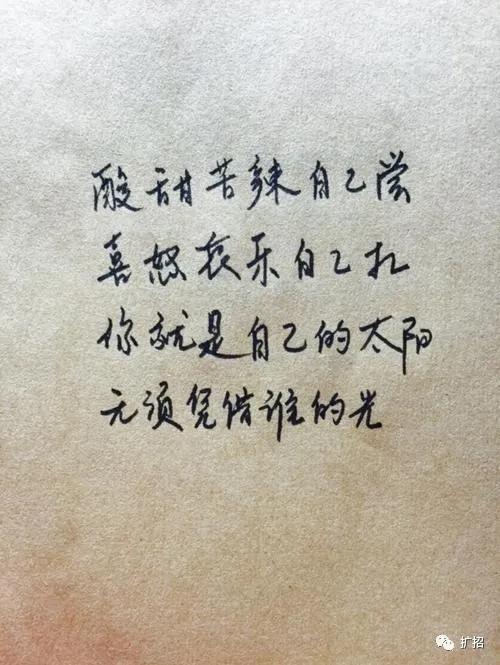 酸甜苦辣自己尝
喜怒哀乐自己扎
你就是自己的太阳
无须凭借谁的光
扩招